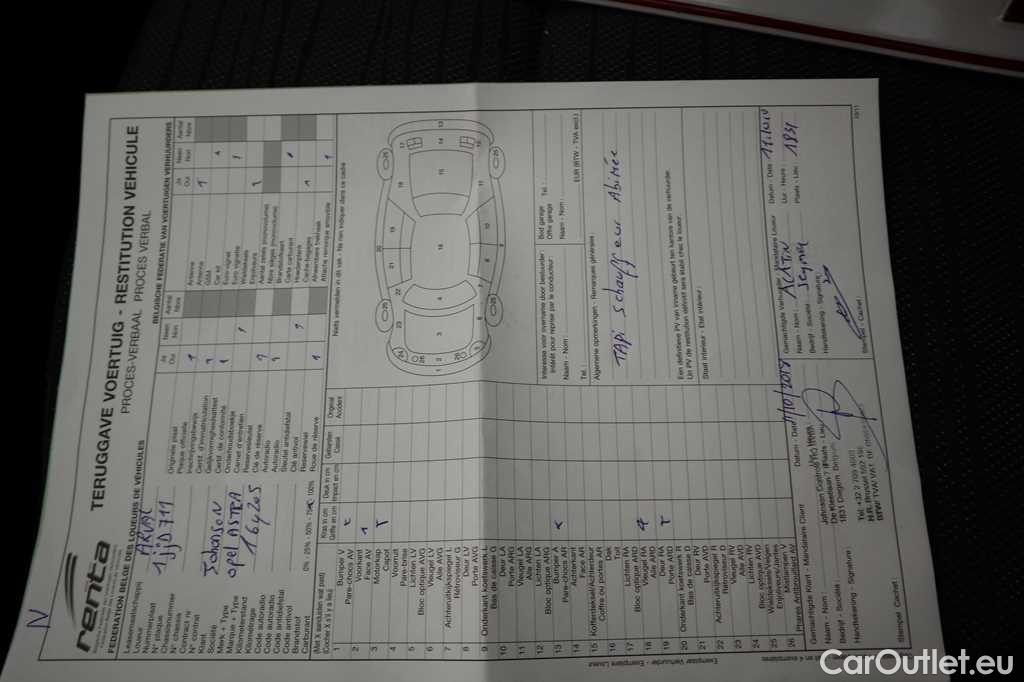 N
renta
FEDERATION BELGE DES LOUEURS DE VEHICULES
TERUGGAVE VOERTUIG - RESTITUTION VEHICULE
PROCES-VERBAAL PROCES VERBAL
BELGISCHE FEDERATIE VAN VOERTUIGEN VERHUURDERS
Leasemaatschappij
Loueur
Nummerplaat
N° plaque 1JJD711
Chassisnummer
N° chassis
Contract nr
N° contrat
Klant
Société Johnson
Merk + Type
Marque + Type opel ASTRA
Kilometerstand
Kilométrage 164205
Code autoradio
Code autoradio
Code antidiefstal
Code antivol
Brandstof
Carburant 0% - 25% - 50% - 75% - 100%
Ja Neen Aantal
Oui Non Nbre
Originele plaat
Plaque officielle
Inschrijvingsbewijs
Certif. d'immatriculation
Gelijkvormigheidsattest
Certif. de conformité
Onderhoudsboekje
Carnet d'entretien
Reservesleutel
Clé de réserve
Autoradio
Autoradio
Sleutel antidiefstal
Clé antivol
Reservewiel
Roue de réserve
Ja Neen Aantal
Oui Non Nbre
Antenne
Antenne
GSM
Car kit
Euro vignet
Euro vignette
Wieldeksels
Enjoliveurs
Aantal zetels (monovolume)
Nbre sièges (monovolume)
Brandstofkaart
Carte carburant
Hoedenplank
Cache-bagages
Afneembare trekhaak
Attache remorque amovible
(Met X aanduiden wat past)
(Cocher X s'il y a lieu)
Kras in cm
Griffe en cm
Deuk in cm
Impact en cm
Gebarsten
Cassé
Origineel
Accident
1 Bumper V
Pare-chocs AV
2 Voorkant
Face AV
3 Motorkap
Capot
4 Voorruit
Pare-brise
5 Lichten LV
Bloc optique AVG
6 Vleugel LV
Aile AVG
7 Achteruitkijkspiegel L
Rétroviseur G
8 Deur LV
Porte AVG
9 Onderkant koetswerk L
Bas de caisse G
10 Deur LA
Porte ARG
11 Vleugel LA
Aile ARG
12 Lichten LA
Bloc optique ARG
13 Bumper A
Pare-chocs AR
14 Achterkant
Face AR
15 Kofferdeksel/Achterdeur
Coffre ou portes AR
16 Dak
Toit
17 Lichten RA
Bloc optique ARD
18 Vleugel RA
Aile ARD
19 Deur RA
Porte ARD
20 Onderkant koetswerk R
Bas de caisse D
21 Deur RV
Porte AVD
22 Achteruitkijkspiegel R
Rétroviseur D
23 Vleugel RV
Aile AVD
24 Lichten RV
Bloc optique AVD
25 Wieldeksels/Velgen
Enjoliveurs/Jantes
26 Mistlampen V
Phares Antibrouillard AV
Niets vermelden in dit vak - Ne rien indiquer dans ce cadre
Interesse voor overname door bestuurder :
Intérêt pour reprise par le conducteur :
Naam - Nom :
Tel. :
Bod garage
Offre garage
Tel. :
Naam - Nom :
EUR (BTW - TVA excl.)
Algemene opmerkingen - Remarques générales :
TAPi Schauffeur Abimée
Een definitieve PV van inname gebeurt ten kantore van de verhuurder.
Un PV de restitution définitif sera établi chez le loueur.
Staat interieur - Etat intérieur :
Gemachtigde Klant - Mandataire Client
Naam - Nom :
Bedrijf - Société :
Handtekening - Signature :
Stempel - Cachet :
Datum - Date 11/10/2019
Uur - Heure :
Plaats - Lieu :
Johnson Controls
De Kleetlaan 7
1831 Diegem Belgium
Gemachtigde Verhuurder - Mandataire Loueur
Naam - Nom :
Bedrijf - Société :
Handtekening - Signature :
Stempel - Cachet :
Datum - Date
Uur - Heure :
Plaats - Lieu : 1831
Exemplaar Verhuurder - Exemplaire Loueur
10/11
CarOutlet.eu